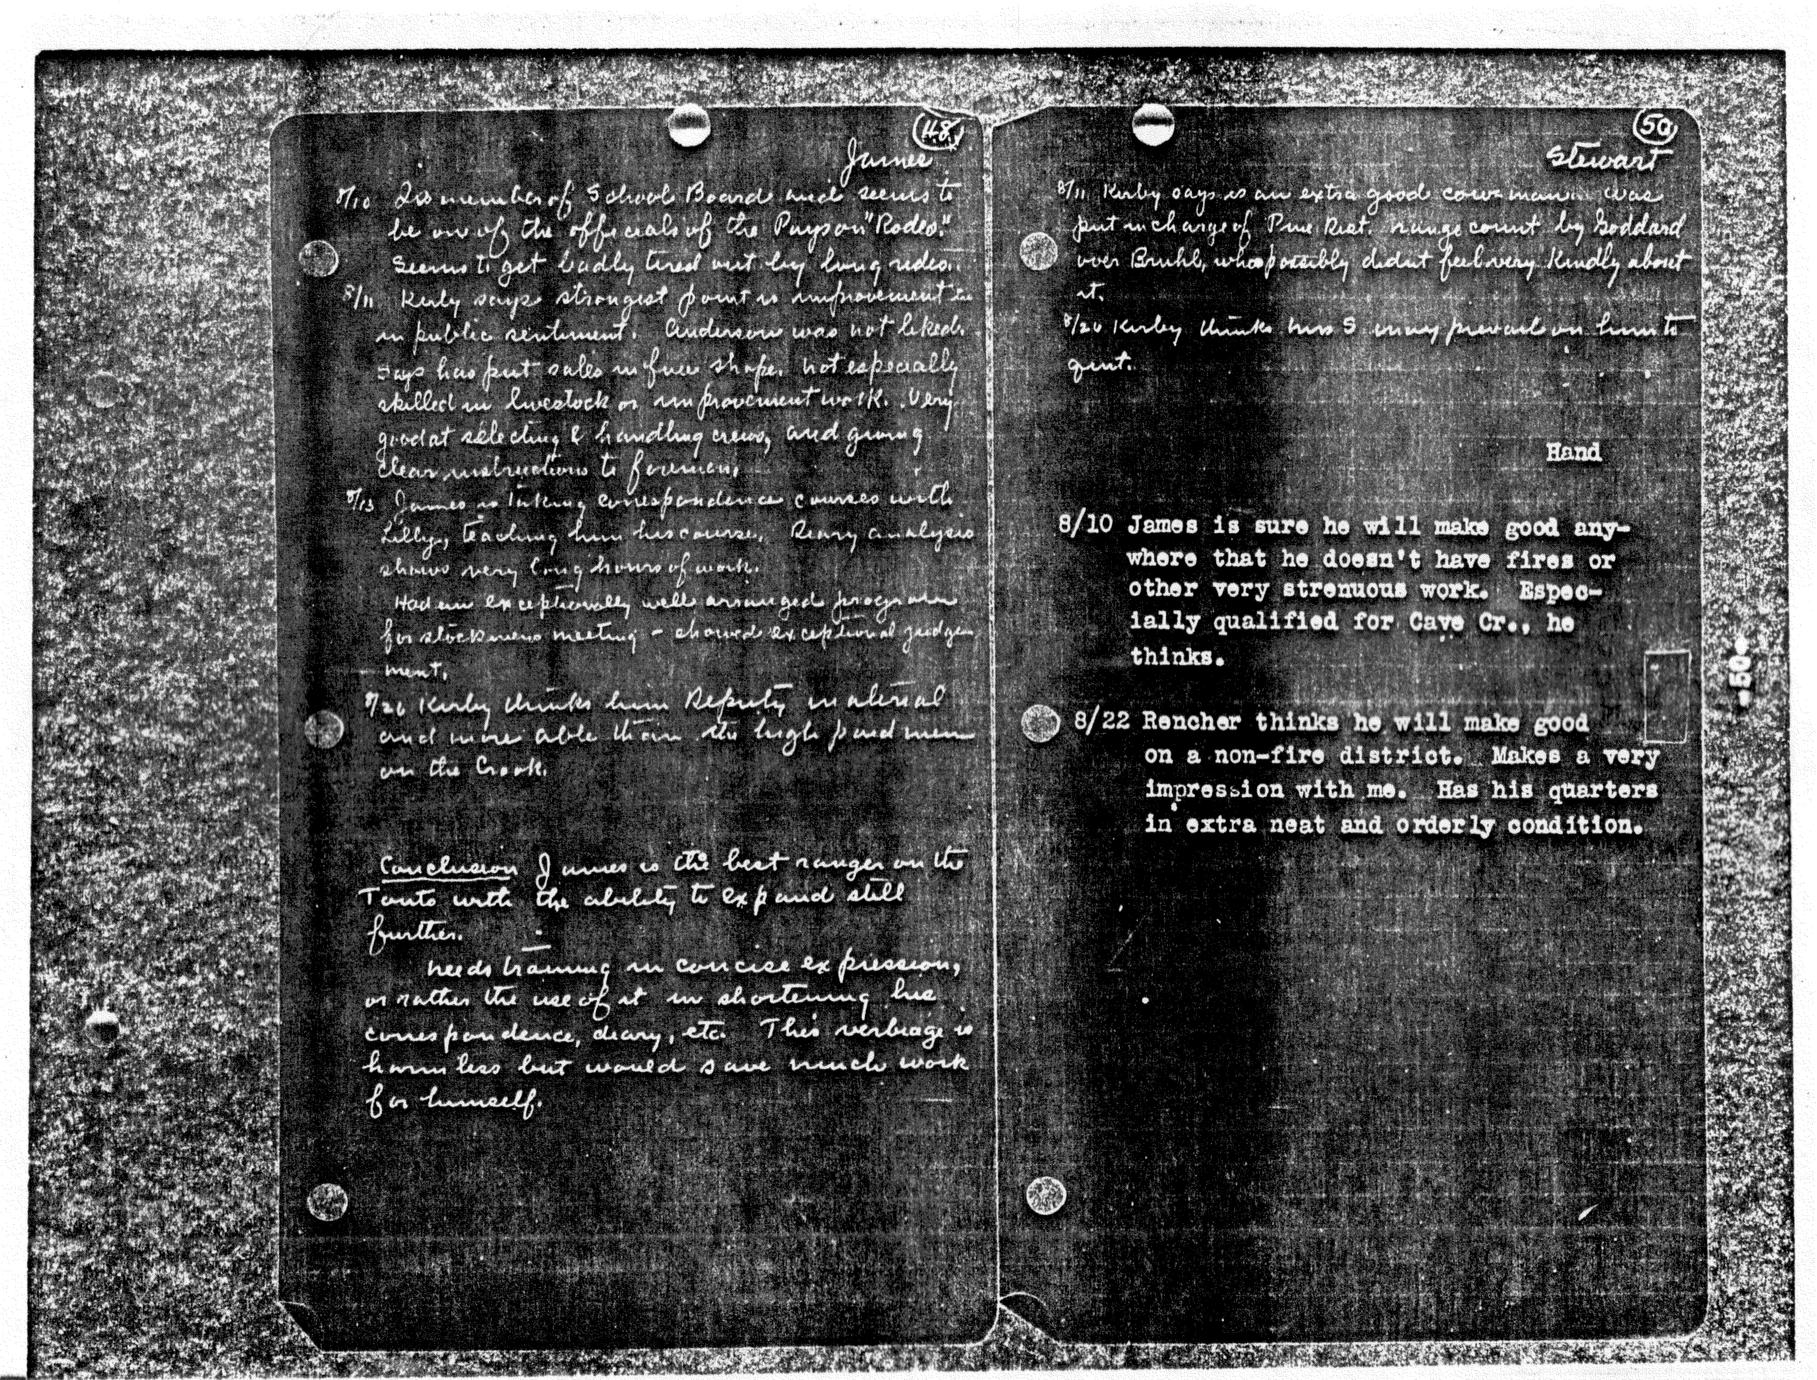 48
James
8/10 Is member of School Board and seems to
be one of the officials of the Payson "Rodeo."
Seems to get badly tired out by long rides.
8/11 Kirby says strongest point is improvement in
in public sentiment. Anderson was not liked.
Says has put sales in fine shape. Not especially
skilled in livestock or improvement work. Very
good at selecting & handling crews, and giving
clear instructions to foremen.
8/13 James is taking correspondence courses with
Lilly, teaching him his course. Diary analysis
shows very long hours of work.
Had an exceptionally well arranged program
for stockmens meeting - showed exceptional judge-
ment.
8/20 Kirby thinks him Deputy material
and more able than the high paid men
on the Crook.
Conclusion James is the best ranger on the
Tonto with the ability to expand still
further.
Needs training in concise expression,
or rather the use of it in shortening his
correspondence, diary, etc. This verbiage is
harmless but would save much work
for himself.
50
Stewart
8/11 Kirby says is an extra good cow man. Was
put in charge of Pine Dist. range count by Goddard
over Bruhl, who possibly didnt feel very kindly about
it.
8/20 Kirby thinks Mrs S may prevail on him to
quit.
Hand
8/10 James is sure he will make good any-
where that he doesn't have fires or
other very strenuous work. Espec-
ially qualified for Cave Cr., he
thinks.
8/22 Rencher thinks he will make good
on a non-fire district. Makes a very
impression with me. Has his quarters
in extra neat and orderly condition.
-50-